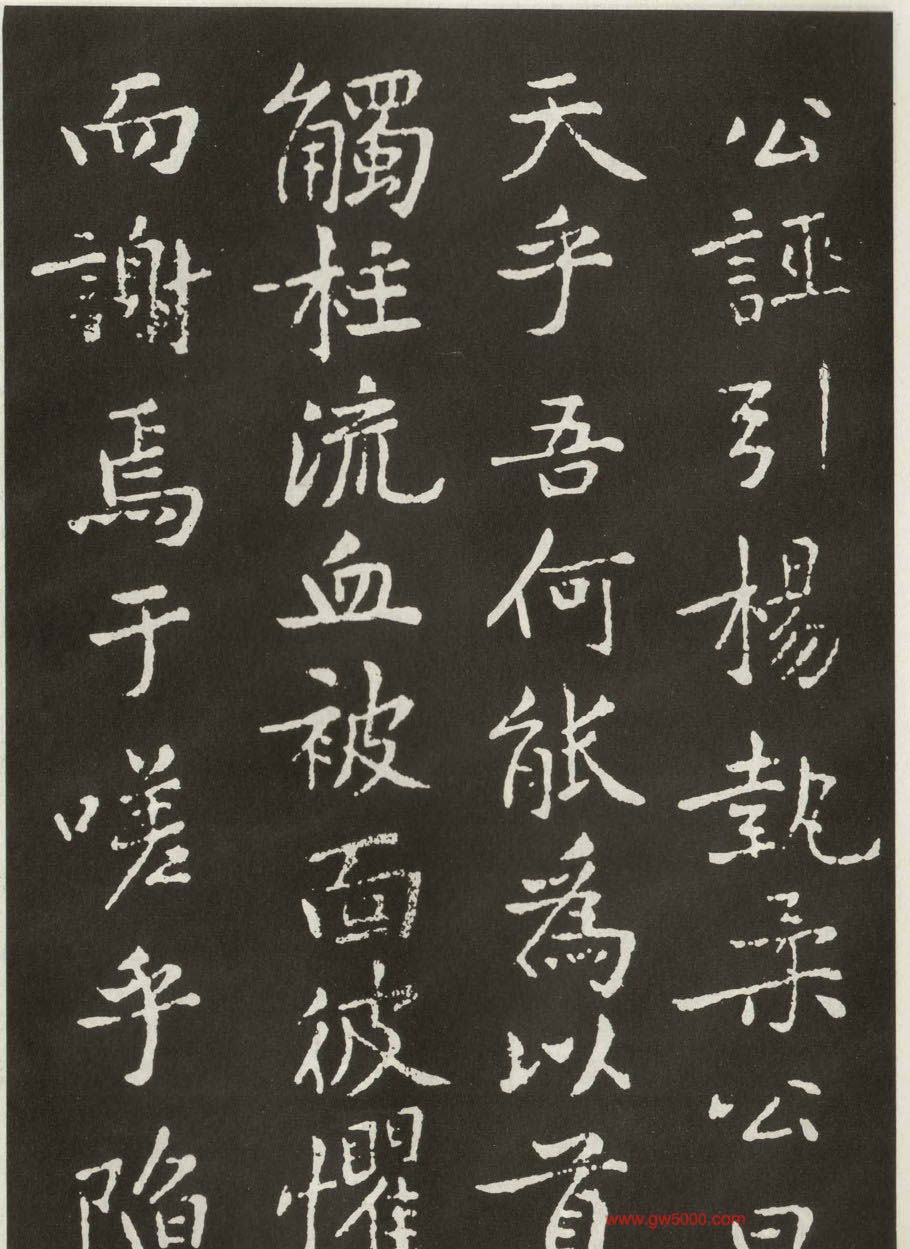 公誣引楊執柔公曰
天乎吾何能為以首
觸柱流血被面彼懼
而謝焉于嗟乎陷
www.gw5000.com